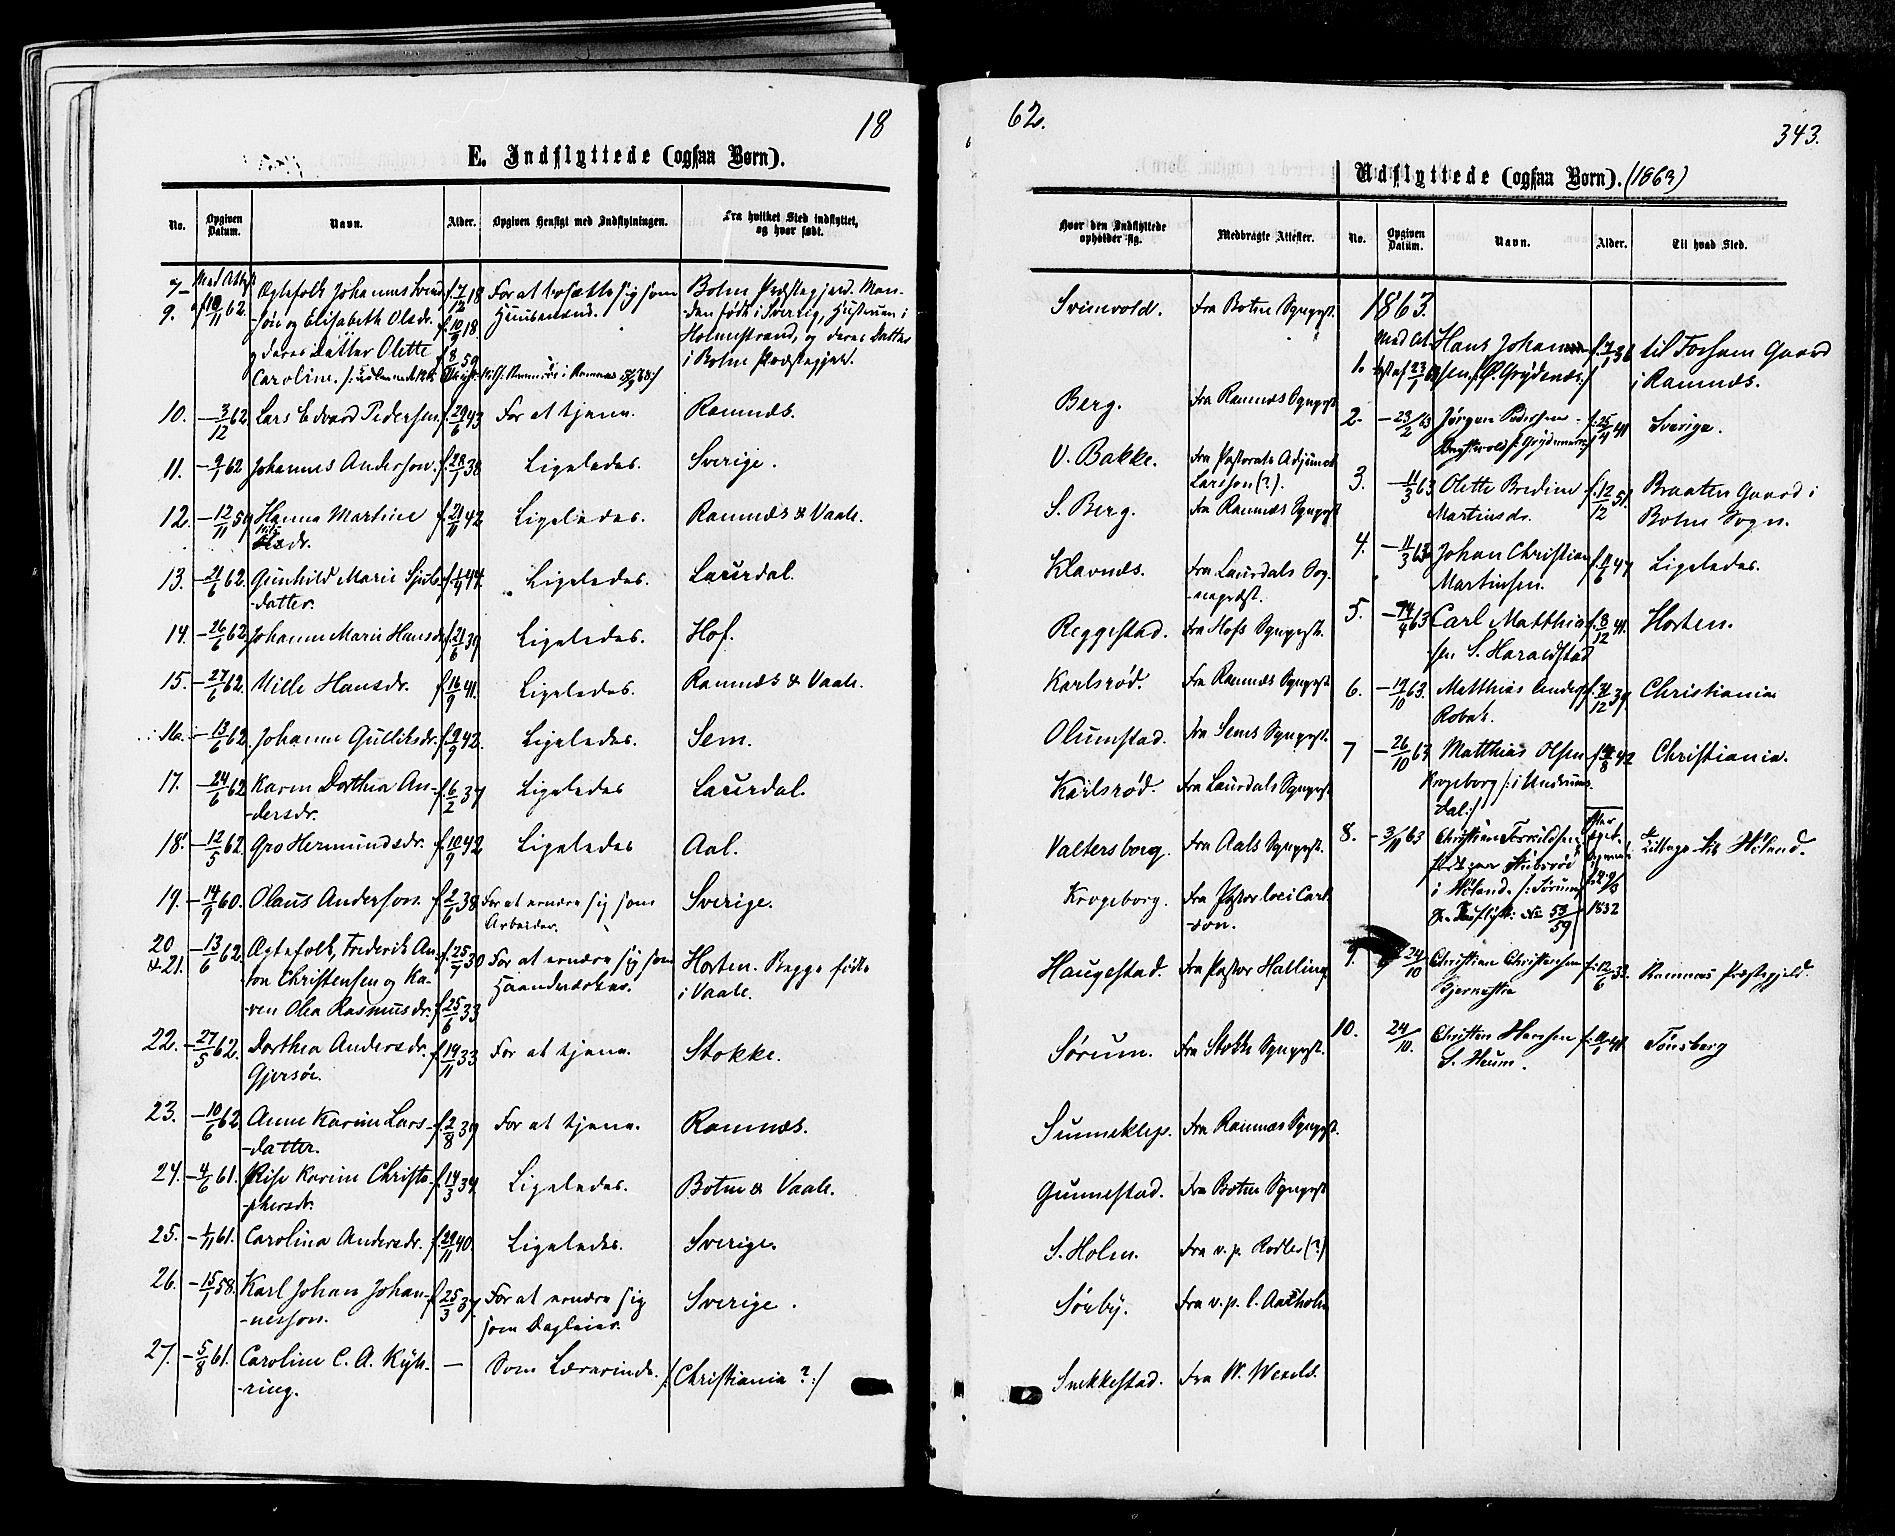 18
E. Indflyttede (ogsaa Børn).
No.
Opgiven Datum.
Navn.
Alder.
Opgiven Hensigt med Indflytningen.
Fra hvilket Sted indflyttet, og hvor født.
7-9. Med Attest af 18/11 62. Ægtefolk Johannes Svend- f. 7/12 18 For at bosætte sig som Botne Præstegjeld. Man-
-søn og Elisabeth Olsdr. f. 10/9 18. Huusmænd. -den født i Sverig, Hustruen i
og deres Datter Olette f. 8/ 59 Holmestrand, og deres Datter
Caroline. i Botne Præstegjeld.
10. -3/12 62. Lars Edvard Pedersen. f. 29/6 43 For at tjene. Ramnæs.
11. -9/1 62 Johannes Anderson. f. 28/7 38 Ligeledes. Sverige.
12. -12/11 59 Hanna Martine f. 21/11 42 Ligeledes. Ramnæs & Vaale.
13. -21/6 62. Gunhild Marie f. 1/9 44. Ligeledes. Laurdal.
-datter.
14. -26/6 62 Johanne Marie Hansdr. f. 21/6 39 Ligeledes. Hof.
15. -27/6 62. Mille Hansdr. f. 16/9 41. Ligeledes. Ramnæs & Vaale.
16. -13/6 62. Johanne Gulliksdr. f. 9/9 42. Ligeledes. Sem.
17. -24/6 62 Karen Dorthea An- f. 6/2 37 Ligeledes Laurdal.
-dersdr.
18. -12/5 62. Gro Hermundsdr. f. 10/9 42 Ligeledes Aal.
19. -14/9 60. Olaus Anderson. f. 2/6 38 For at ernære sig som Sverige.
Arbeider.
20 & 21. -13/6 62. Ægtefolk, Frederik An- f. 25/7 30 For at ernære sig som Horten. Begge fødte
ton Christensen og Ka- Haandværker. i Vaale.
ren Olea Rasmusdr. f. 25/6 33
22. -27/5 62. Dorthea Andersdr. f. 19/11 33 For at tjene. Stokke.
Gjersøe.
23. -10/6 62 Anne Karine Lars- f. 2/8 39 For at tjene. Ramnæs.
-datter.
24. -4/6 61. Karine Christo- f. 14/3 34 Ligeledes. Botne & Vaale.
phersdr.
25. -1/11 61. Carolina Andersdr. f. 29/11 40. Ligeledes. Sverige.
26. -15/1 58. Karl Johan Johan- f. 25/3 37. For at ernære sig Sverige.
-nesson. som Dagleier.
27. -5/8 61. Caroline C. A. Küh- — Som Lærerinde. /: Christiania ? :/
-ring.
62.
343.
Udflyttede (ogsaa Børn). (1863)
Hvor den Indflyttede opholder sig.
Medbragte Attester.
No.
Opgiven Datum.
Navn.
Alder.
Til hvad Sted.
Svinevold. Fra Botne Sgnpst.
Berg. Fra Ramnæs Sgnpst.
V. Bakke. Fra Pastorats Adjunct
Larsson (?).
S. Berg. Fra Ramnæs Sgnpst
Klavnæs. Fra Laurdals Sog-
-nepræst.
Reggestad. Fra Hofs Sgnpst.
Karlsrød. Fra Ramnæs Sgnpst
Olumstad. Fra Sems Sgnpst.
Karlsrød. Fra Laurdals Sgnpst
Valtersborg. Fra Aals Sgnpst.
Krogeborg. Fra Pastor loci Carl-
-son.
Haugestad. Fra Pastor Halling
Sørum. Fra Stokke Sgnpst.
Sunneklep. Fra Ramnæs Sgnpst.
Gunnestad. Fra Botne Sgnpst
S. Holm. Fra v. p. Rodler (?)
Sørby. Fra v. p. l. Aaxholm
Snekkestad. Fra W. Wexels.
1863.
1. Med At- Hans Johan f. 7/ 36 til Fossom Gaard
test af 23/1 63 sen. i Ramnæs.
2. -23/2 63 Jørgen Pedersen f. 25/4 41 Sverige.
3. -11/3 63 Olette Bredine f. 12/12 51. Braaten Gaard i
Martinsdr. Botne Sogn.
4. -11/3 63 Johan Christian f. 11/6 47 Ligeledes.
Martinsen.
5. -14/4 63 Carl Matthia- f. 8/12 41. Horten.
sen S. Haraldstad
6. -19/10 63. Matthias Anders f. 31/12 39 Christiania
Robek.
7 -26/10 63 Matthias Olsen f. /8 42 Christiania.
Krogeborg /: i Undrums-
dal :/
8. -3/11 63 Christian Torvildsen Efter til Høland.
i Høland. /: Sørum
No 53/59 1832
9. 24/10 Christian Christensen f. 12/6 32 Ramnæs Præstegjeld.
10. 24/10. Christen Hansen f. 41 Tønsberg
S. Heum.